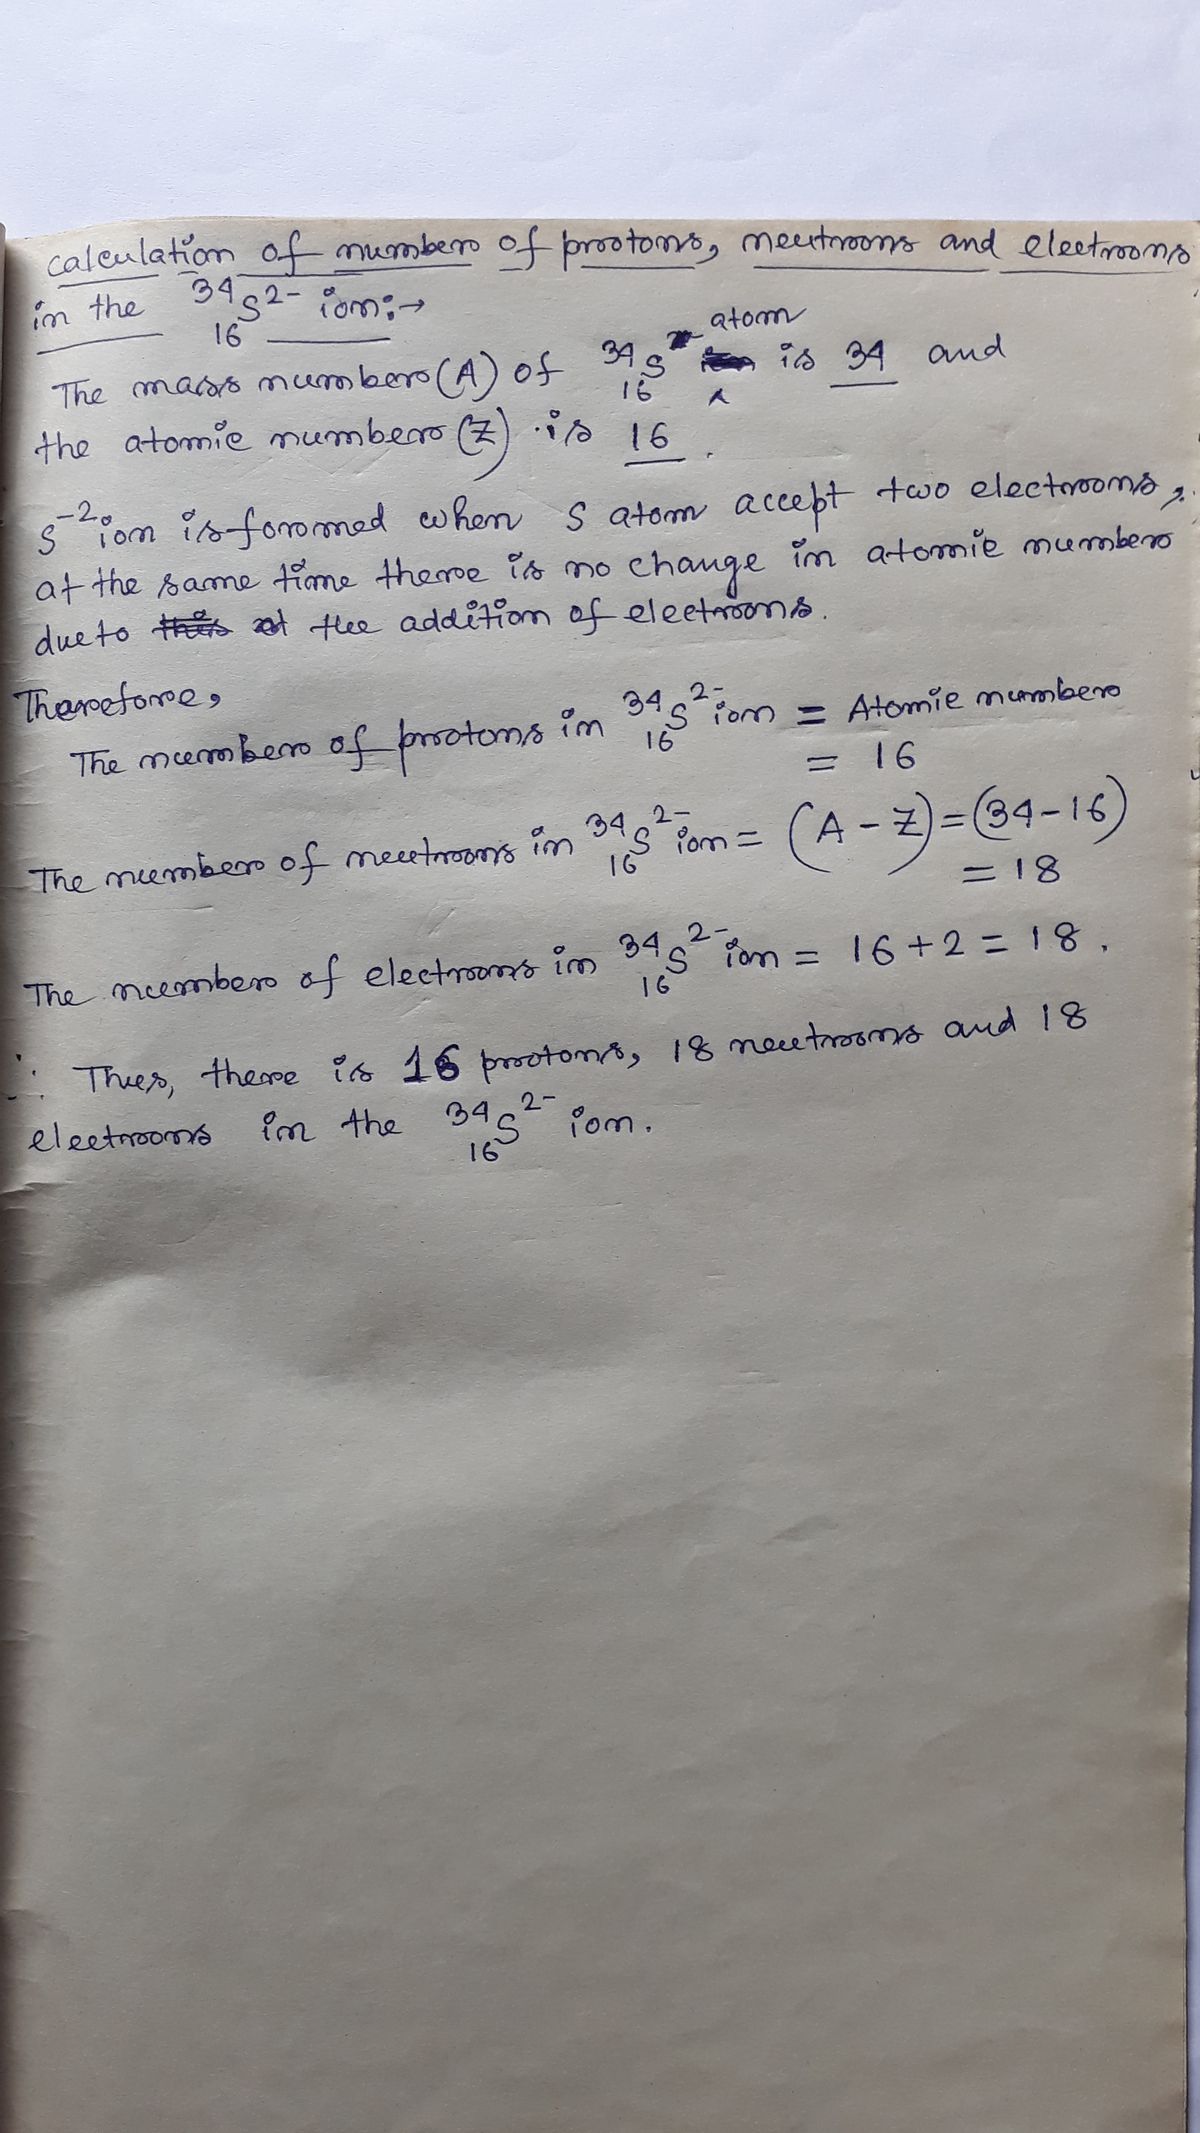 calculation of number of protons, neutrons and electrons
in the ³⁴₁₆S²⁻ ion:→
The mass number (A) of ³⁴₁₆S atom is 34 and
the atomic number (Z) is 16.
S⁻² ion is formed when S atom accept two electrons,
at the same time there is no change in atomic number
due to the addition of electrons.
Therefore,
The number of protons in ³⁴₁₆S²⁻ ion = Atomic number
= 16
The number of neutrons in ³⁴₁₆S²⁻ ion = (A - Z) = (34-16)
= 18
The number of electrons in ³⁴₁₆S²⁻ ion = 16 + 2 = 18.
∴ Thus, there is 16 protons, 18 neutrons and 18
electrons in the ³⁴₁₆S²⁻ ion.